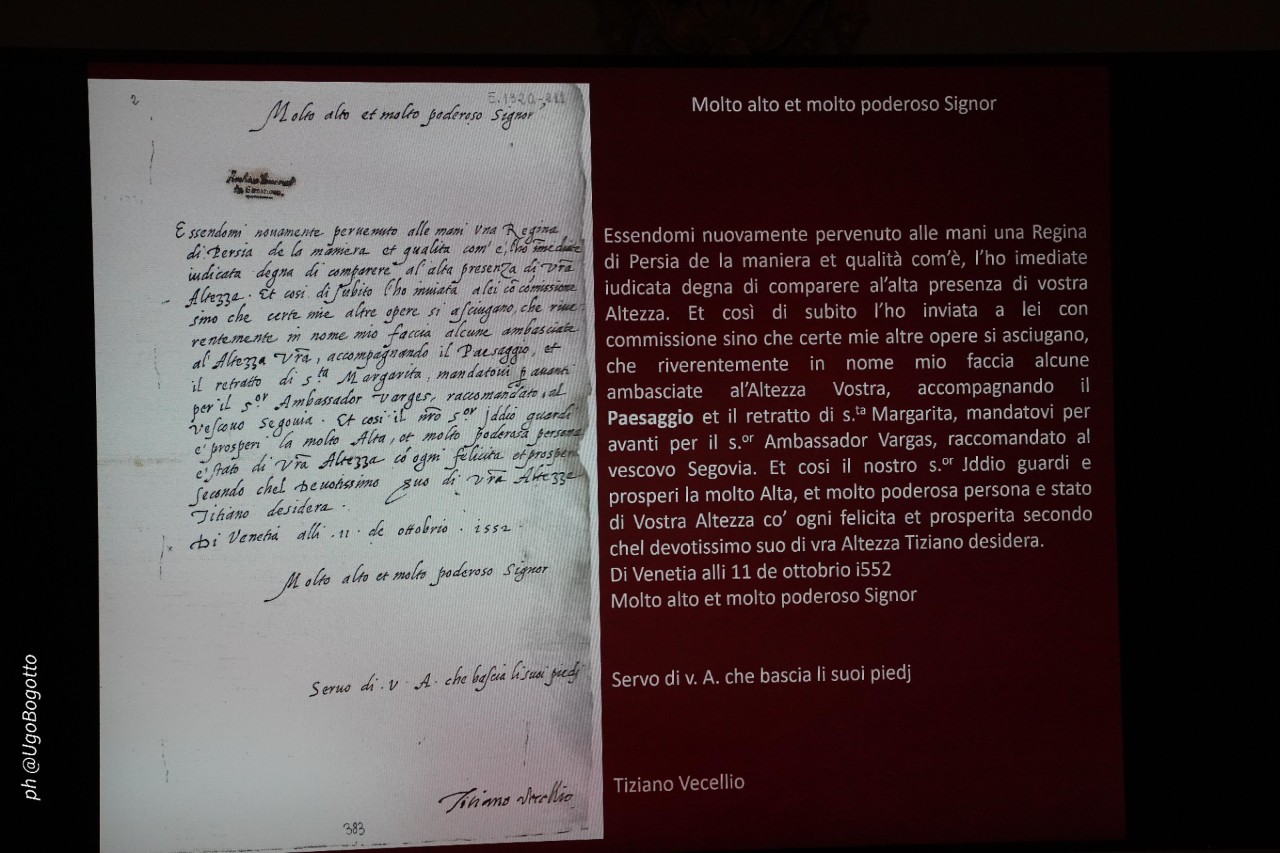 2
E.1320-211
Molto alto et molto poderoso Signor
Archivo General
de Simancas
Essendomi nouamente peruenuto alle mani una Regina
di Persia de la maniera et qualita com' è, l'ho imediate
iudicata degna di comparere al'alta presenza di vrā
Altezza. Et cosi di subito l'ho inuiata a lei co comissione
sino che certe mie altre opere si asciugano, che riue-
rentemente in nome mio faccia alcune ambasciate
al'Altezza vrā, accompagnando il Paesaggio, et
il retratto di s.ta Margarita, mandatoui p auanti
per il s.or Ambassador Varges, raccomandato, al
vescouo Segouia. Et cosi il nrō s.or Jddio guardi
e prosperi la molto Alta, et molto poderosa persona
e stato di vrā Altezza co ogni felicita et prosper
secondo chel Deuotissimo suo di vrā Altezza
Titiano desidera.
Di Venetia alli .11. de ottobrio .1552.
Molto alto et molto poderoso Signor
Seruo di .v. A. che bascia li suoi piedj
Titiano Vecellio
383
Molto alto et molto poderoso Signor
Essendomi nuovamente pervenuto alle mani una Regina
di Persia de la maniera et qualità com'è, l'ho imediate
iudicata degna di comparere al'alta presenza di vostra
Altezza. Et così di subito l'ho inviata a lei con
commissione sino che certe mie altre opere si asciugano,
che riverentemente in nome mio faccia alcune
ambasciate al'Altezza Vostra, accompagnando il
Paesaggio et il retratto di s.ta Margarita, mandatovi per
avanti per il s.or Ambassador Vargas, raccomandato al
vescovo Segovia. Et cosi il nostro s.or Jddio guardi e
prosperi la molto Alta, et molto poderosa persona e stato
di Vostra Altezza co' ogni felicita et prosperita secondo
chel devotissimo suo di vra Altezza Tiziano desidera.
Di Venetia alli 11 de ottobrio i552
Molto alto et molto poderoso Signor
Servo di v. A. che bascia li suoi piedj
Tiziano Vecellio
ph @UgoBogotto